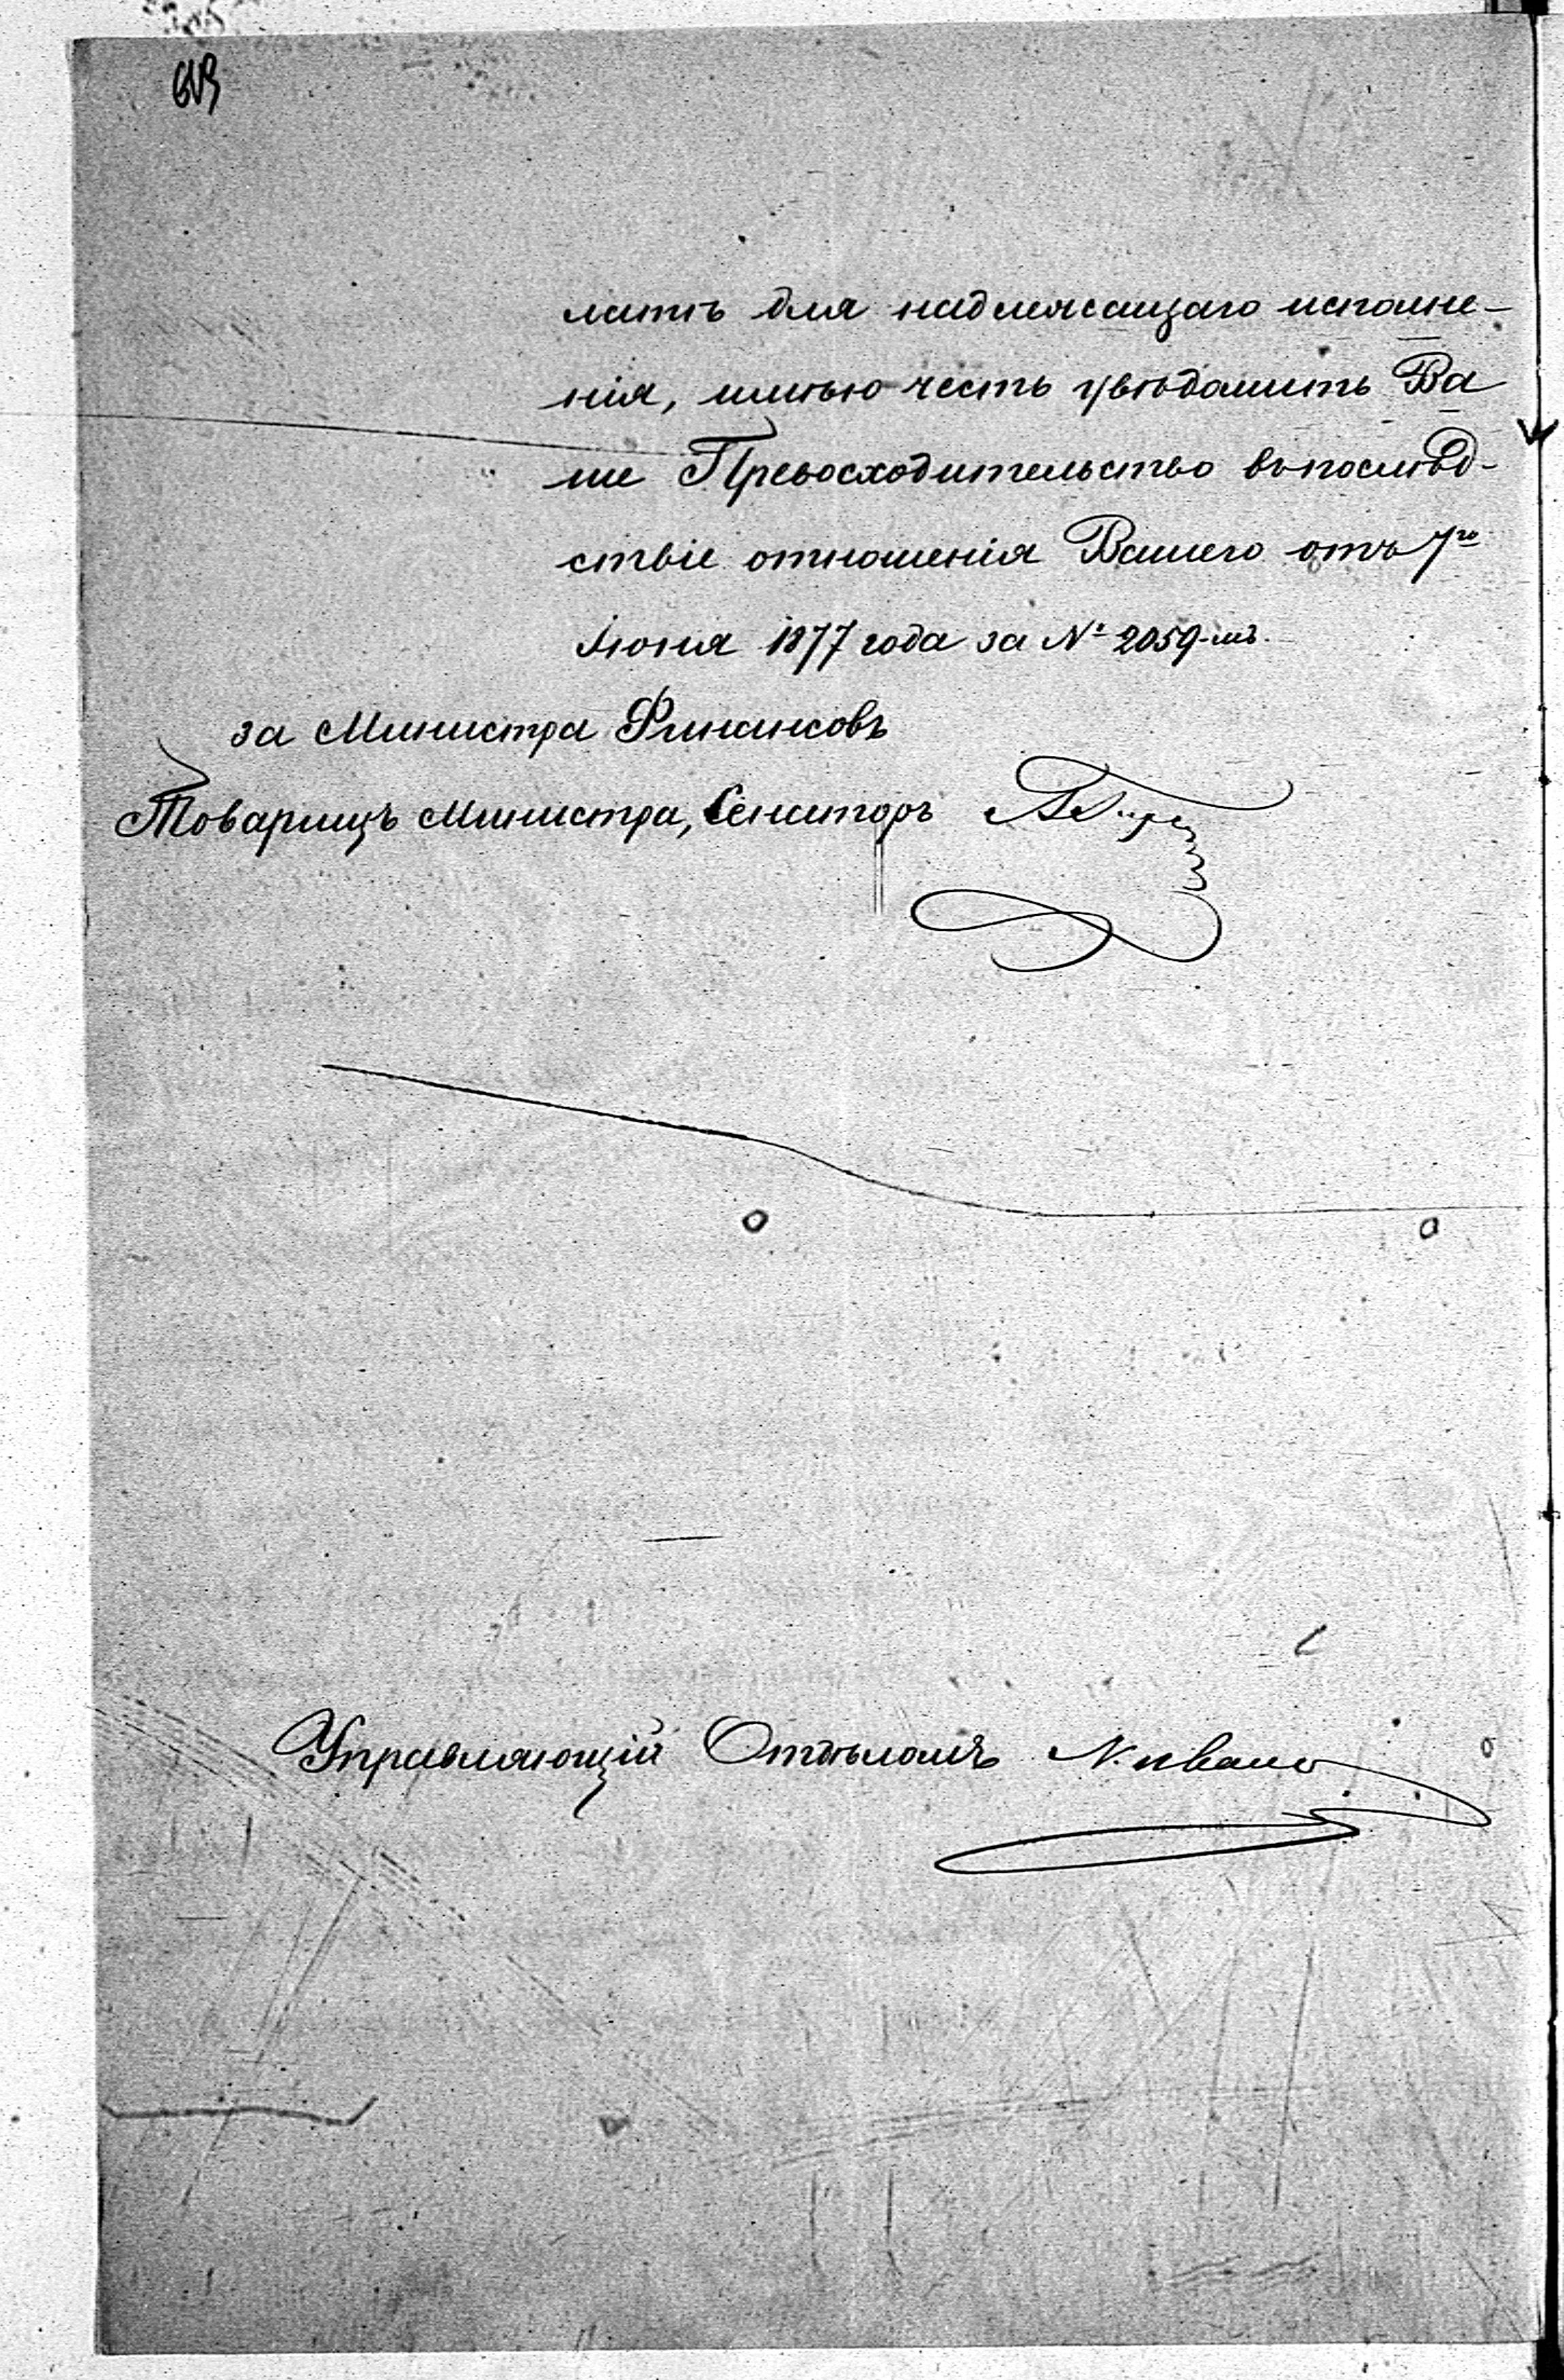 латъ для надлежащаго исполне-
нія, имѣю честь увѣдомить Ва
ше Превосходительство въ послѣд-
ствіе отношенія Вашего отъ 7го
Іюня 1877 года за № 2059-мъ.
за Министра Финансовъ
Товарищъ Министра, Сенаторъ
Управляющій Отдѣломъ